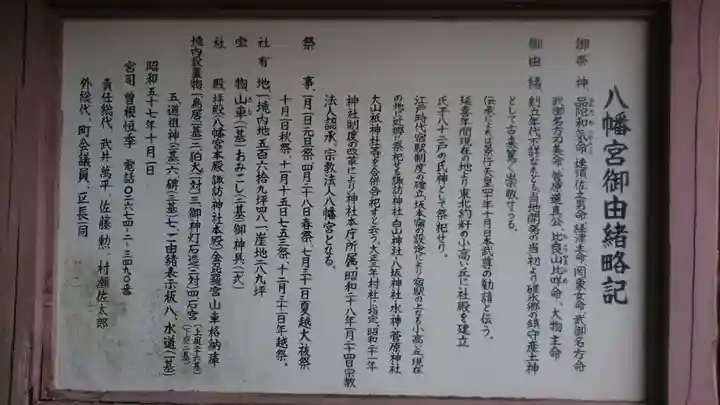 八幡宮御由緒略記
御祭神、品陀和気命、速須佐之男命、経津主命、岡象女命、武御名方命
武御名方刀美命、菅原道真公、比良山比咩命、大物主命
御由緒、創立年代不詳なれども当地開発の当初より碓氷郷の鎮守産土神
として古来篤く崇敬せらる。
伝承によれば景行天皇四十年十月日本武尊の勧請と伝う。
延喜年間現在の地より東北約粁の小高い丘に社殿を建立
氏子八十三戸の氏神として祭祀せり。
江戸時代宿駅制度の確立、坂本宿の設定により宿駅の上なる小高い丘、現在
の地に近郷に祭祀する諏訪神社、白山神社、八坂神社、水神、菅原神社
大山祇神社等を合併合祀すと云う大正五年村社に指定、昭和二十一年
神社制度の改革により神社本庁所属、昭和二十八年八月二十四日宗教
法人認承、宗教法人八幡宮となる。
祭事、一月一日元旦祭、四月二十八日春祭、七月三十一日夏越大祓祭
十月一日秋祭、十一月十五日七五三祭、十二月三十一日年越祭。
社有地、一、境内地五百六拾九坪四八一、崖地二八九坪
宝物、山車(一基)おみこし(三基)御神具(一式)
社殿、拝殿、八幡宮本殿、諏訪神社本殿、金毘羅宮、山車格納庫
境内設置物一、鳥居(一基)二、狛犬(一対)三、御神灯石造(三対)四、石宮(上段三十六基)(下段二基)
五、道祖神(三基)六、碑(三基)七、一由緒表示板八、水道(一基)
昭和五十七年十月一日
宮司 曽根恒季 電話〇二六七四-二-三四九〇番
責任総代 武井萬平、佐藤勲、村瀬佐太郎
外総代、町会議員、区長一同